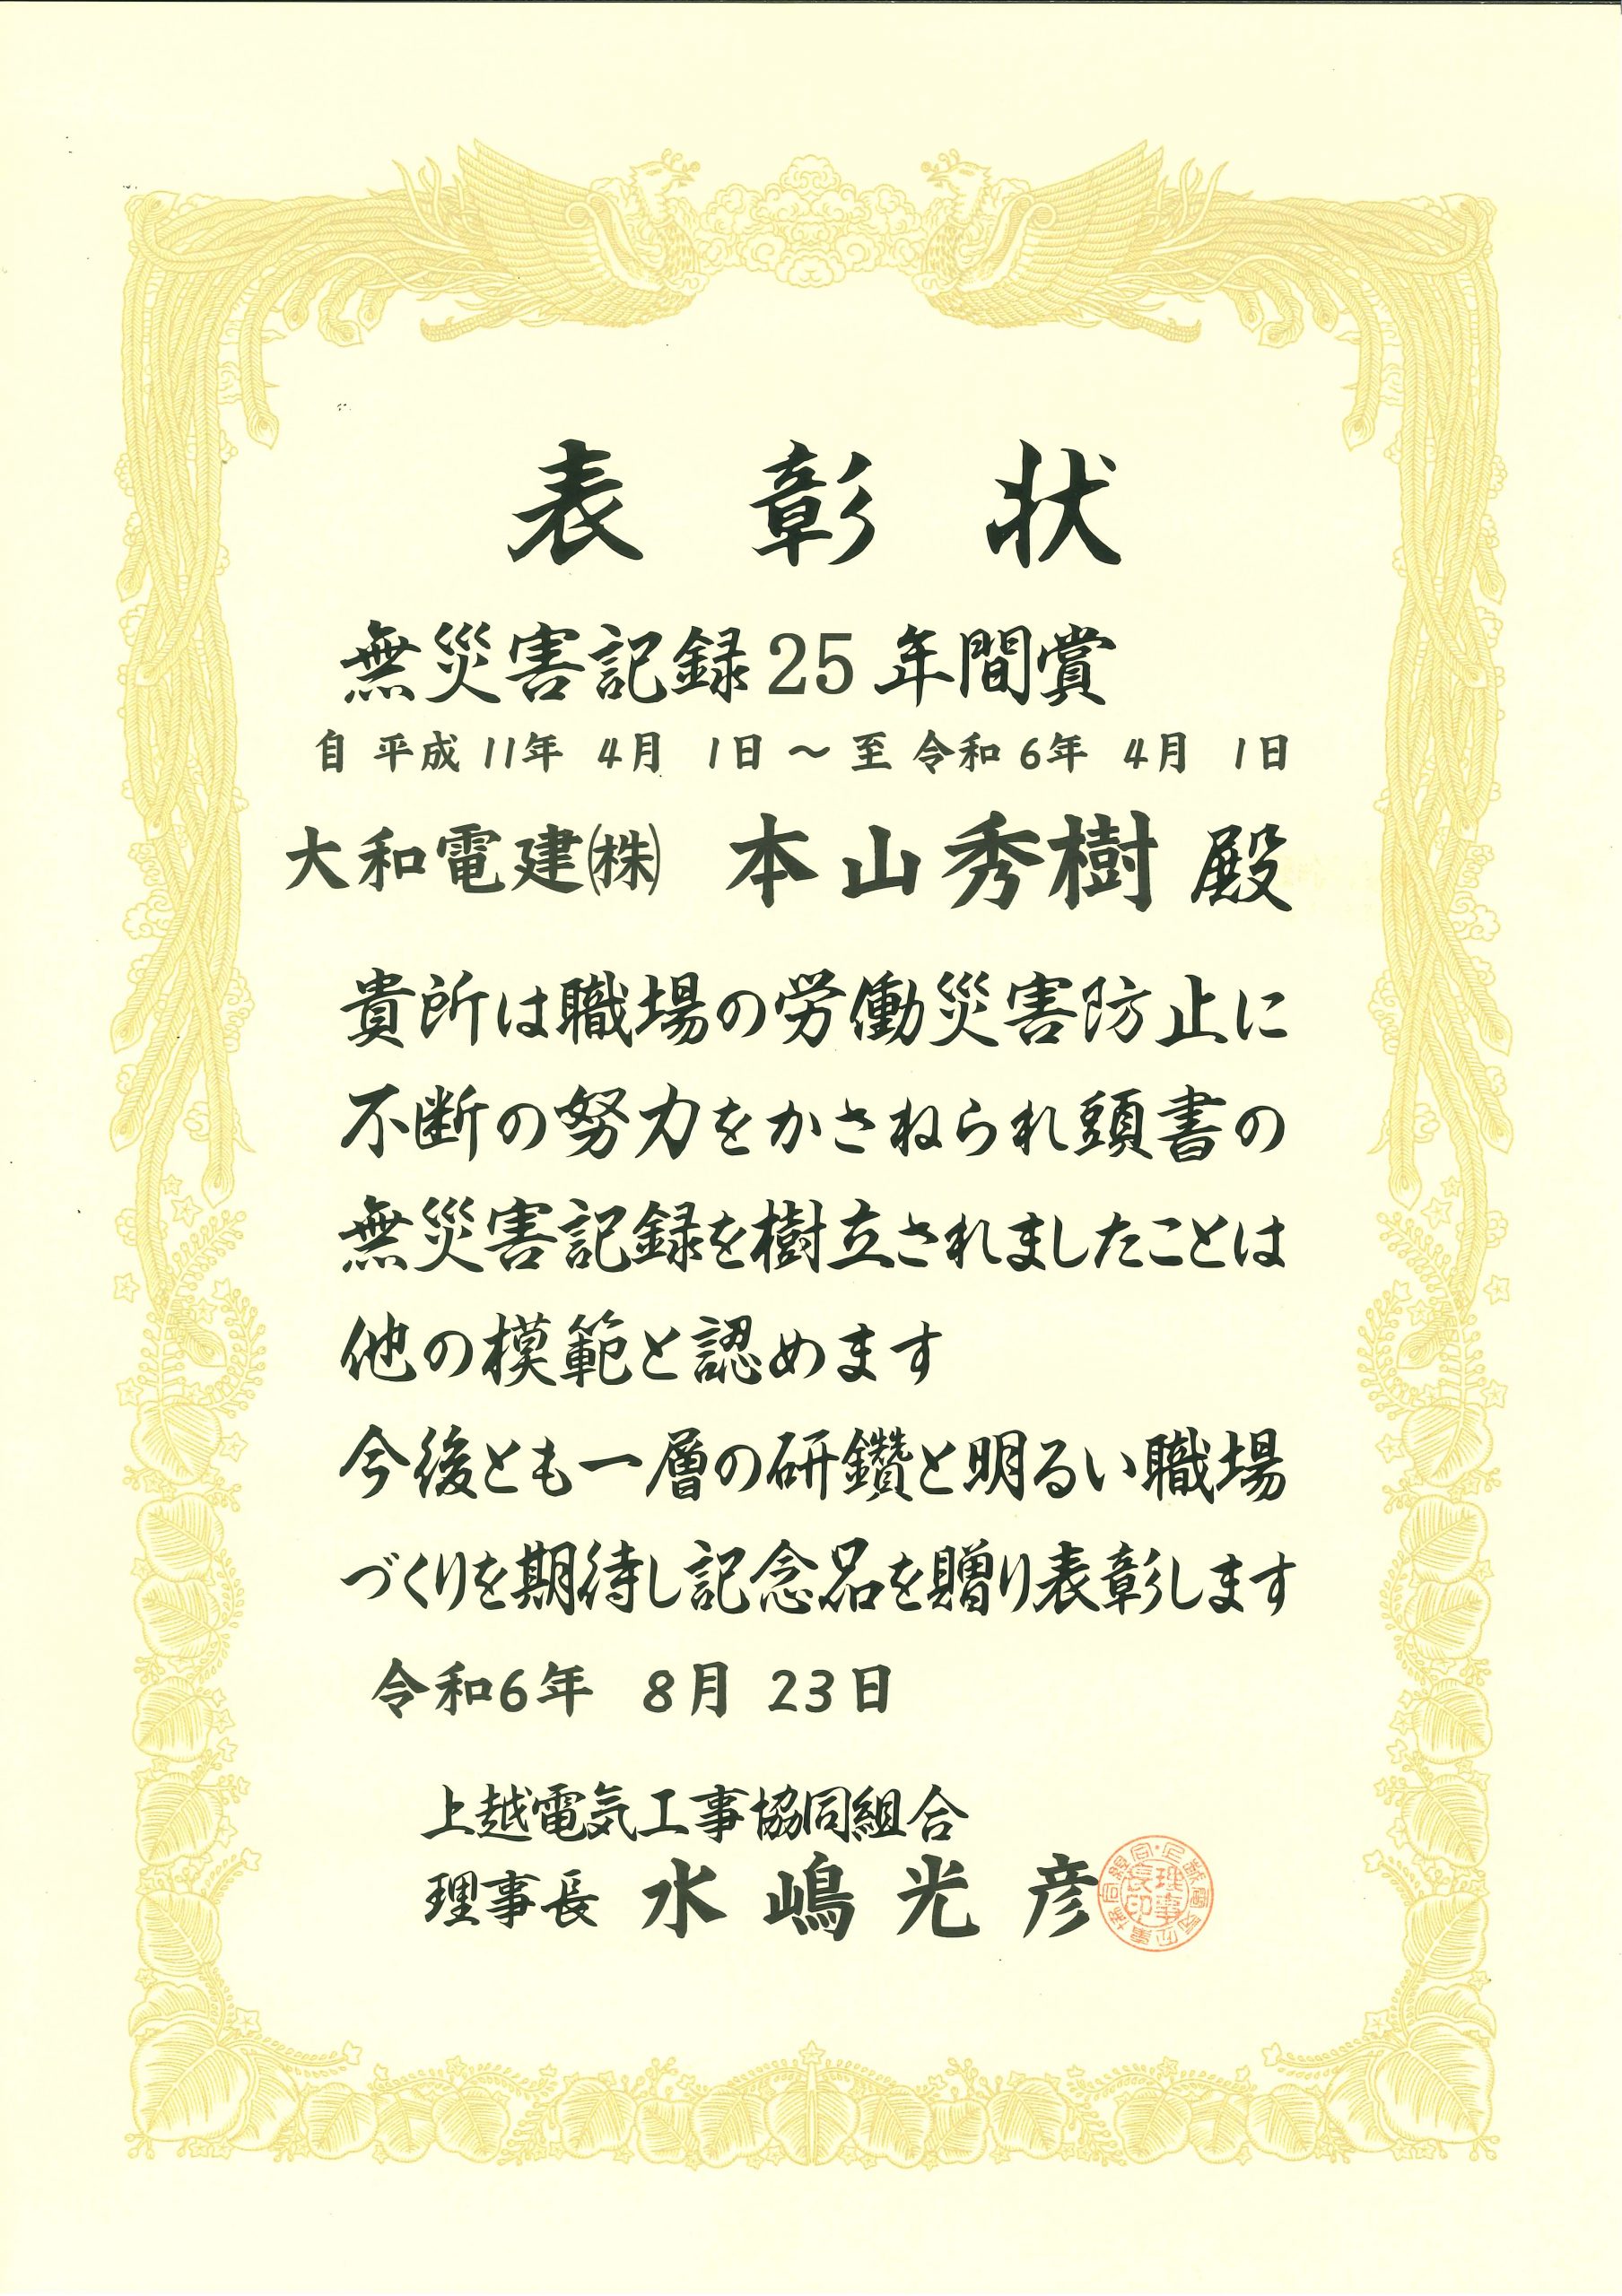 表彰状
無災害記録25年間賞
自 平成 11年 4月 1日 ～ 至 令和 6年 4月 1日
大和電建㈱ 本山秀樹 殿
貴所は職場の労働災害防止に
不断の努力をかさねられ頭書の
無災害記録を樹立されましたことは
他の模範と認めます
今後とも一層の研鑽と明るい職場
づくりを期待し記念品を贈り表彰します
令和6年 8月 23日
上越電気工事協同組合
理事長 水嶋光彦